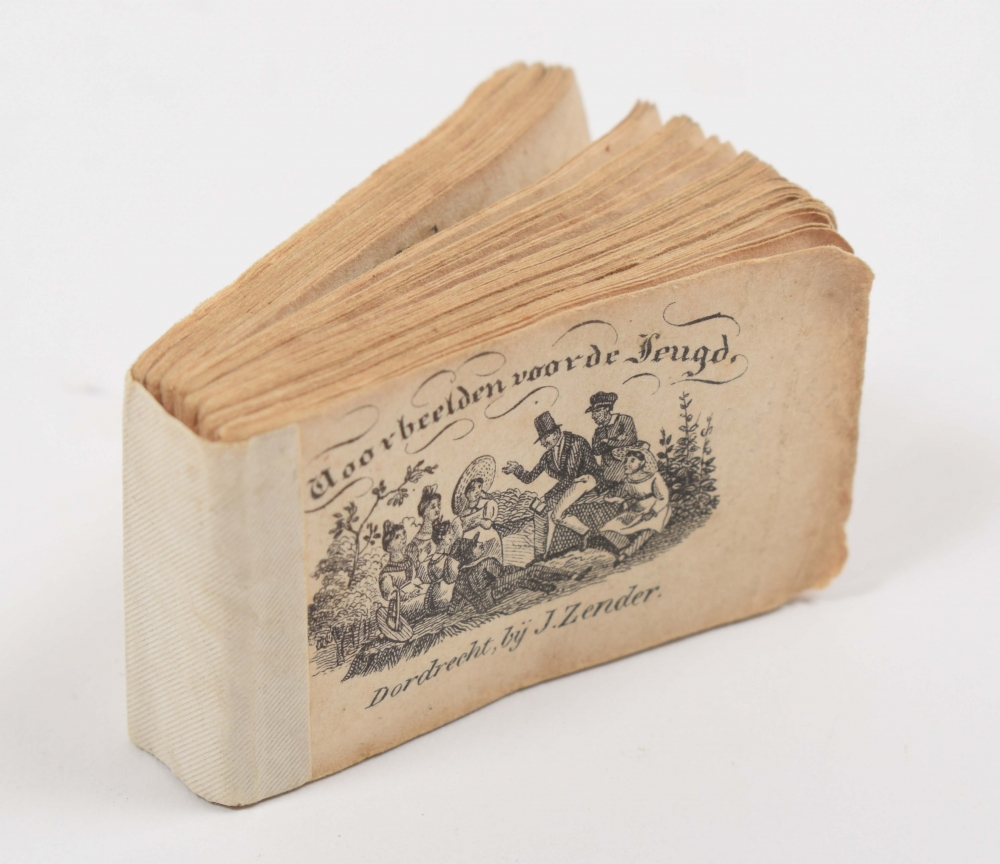 Voorbeelden voor de Jeugd.
Dordrecht, bÿ J. Zender.